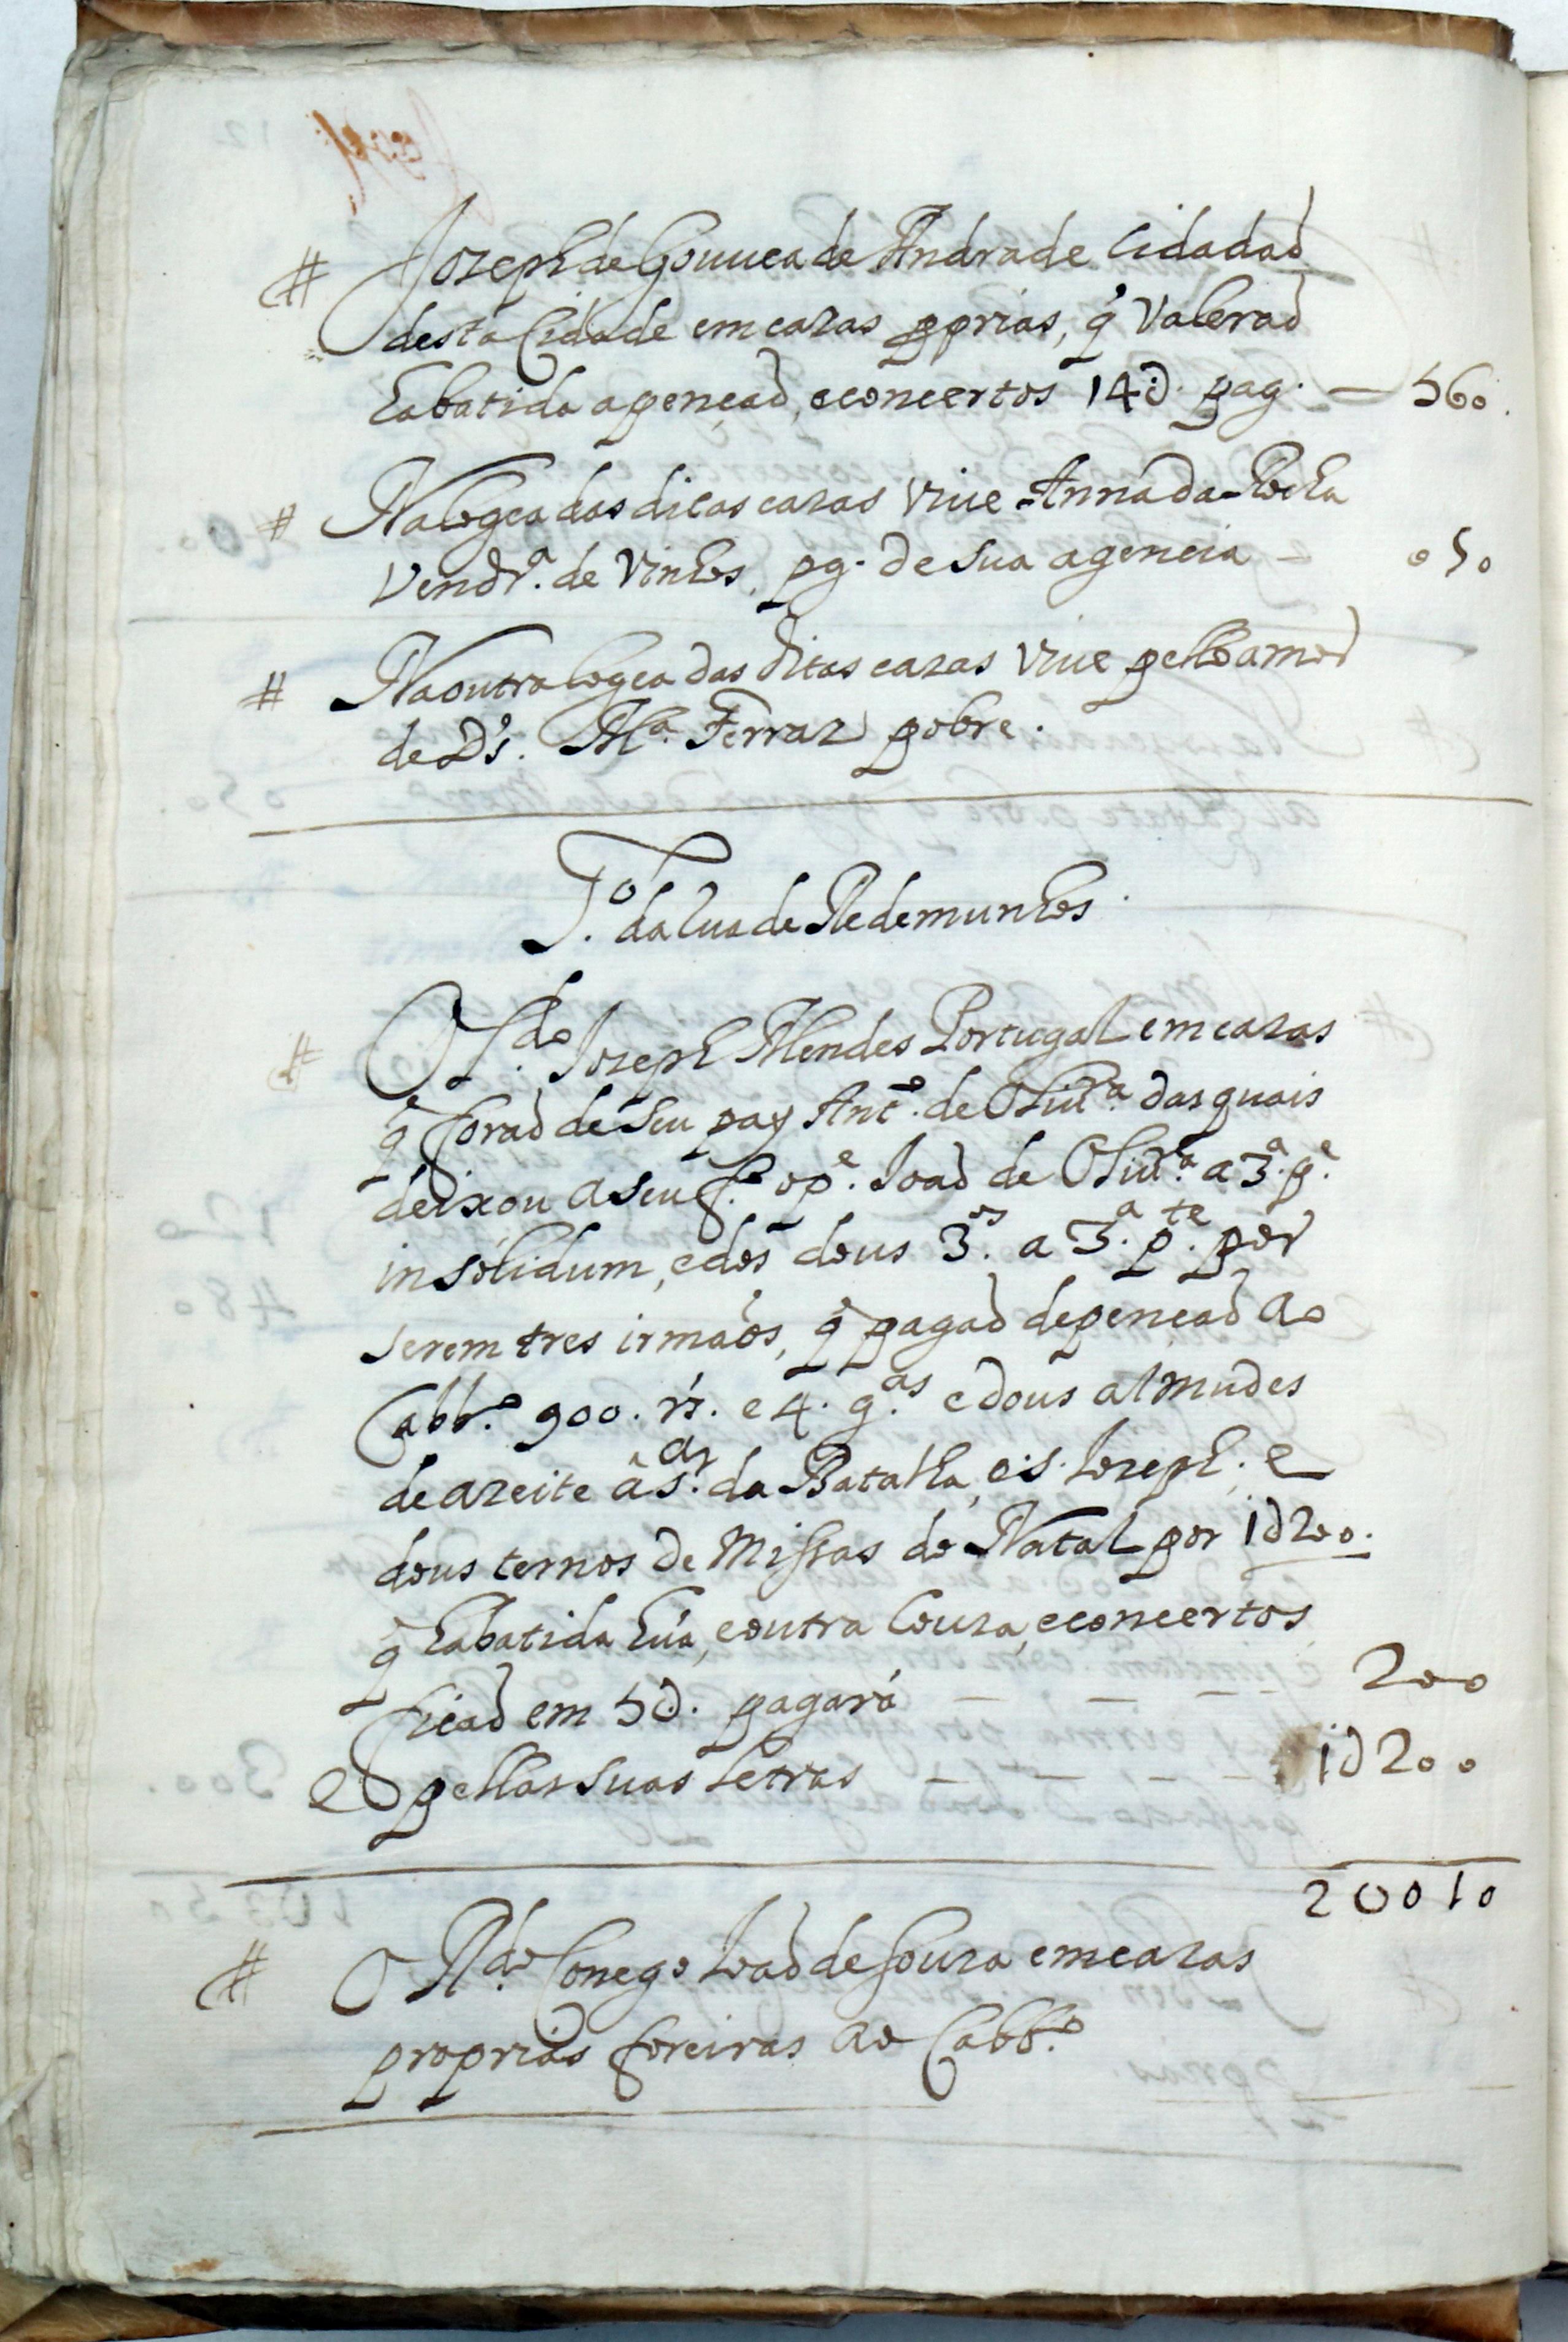 # Joseph de Gouuea de Andrade Cidadaõ
desta Cidade em cazas pprias, q̃ Valeraõ
habatida a penção, e concertos 14∂. pag. — 560.
# Na logea das ditas cazas viue Anna da Rocha
Vendr.ª de Vinhos, pg. de sua agencia — 050
# Na outra logea das ditas cazas viue pello amor
de D's. M.ª Ferraz pobre.
T.º da Rua de Redemunhos.
# O L.do Joseph Mendes Portugal em cazas
q̃ foraõ de seu pay Ant.º de Oliur.ª das quais
deixou a seu f.º o p.e Joaõ de Oliur.ª a 3.ª p.e
insolidum, e dos dous 3.os a 3.ª p.te por
serem tres irmaõs, q̃ pagaõ de pençaõ ao
Cabb.º 900. rs. e 4. g.as e dous almudes
de azeite â s.ar da Batalha, e s. Joseph, e
dous ternos de Missas do Natal por 1∂200.
q̃ habatida hũa, e outra couza, e concertos
ficaõ em 5∂. pagará — — — — 200
e pellas suas Letras — — — — 1∂200
2∂010
# O R.do Conego Joaõ de Souza em cazas
proprias foreiras ao Cabb.º